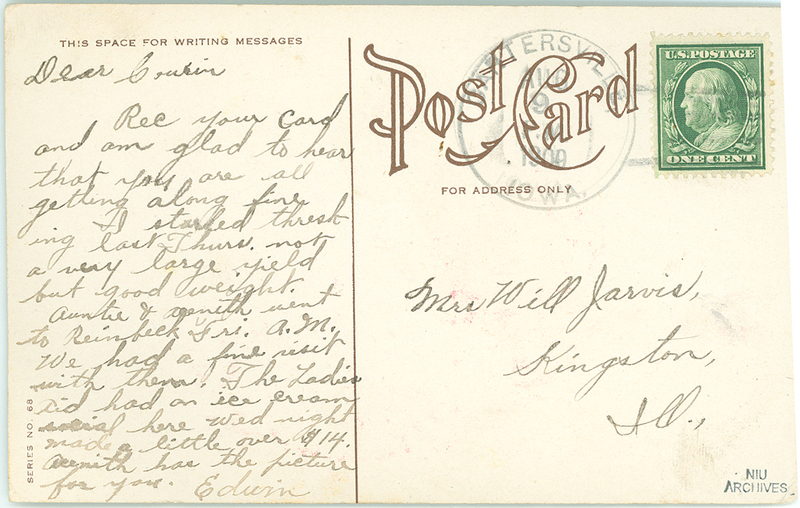 THIS SPACE FOR WRITING MESSAGES
Dear Cousin
Rec your Card
and am glad to hear
that you are all
getting along fine
I started thresh
ing last Thurs. not
a very large yield
but good weight.
Auntie & Zenith went
to Reinbeck Fri. A.M.
We had a fine visit
with them. The Ladies
aid had an ice cream
social here Wed night
made a little over $14.
Zenith has the picture
for you. Edwin
SERIES NO. 68
Post Card
FOR ADDRESS ONLY
AUG
9
1909
IOWA.
U.S. POSTAGE
ONE CENT
Mrs Will Jarvis,
Kingston,
Ill.,
NIU
ARCHIVES